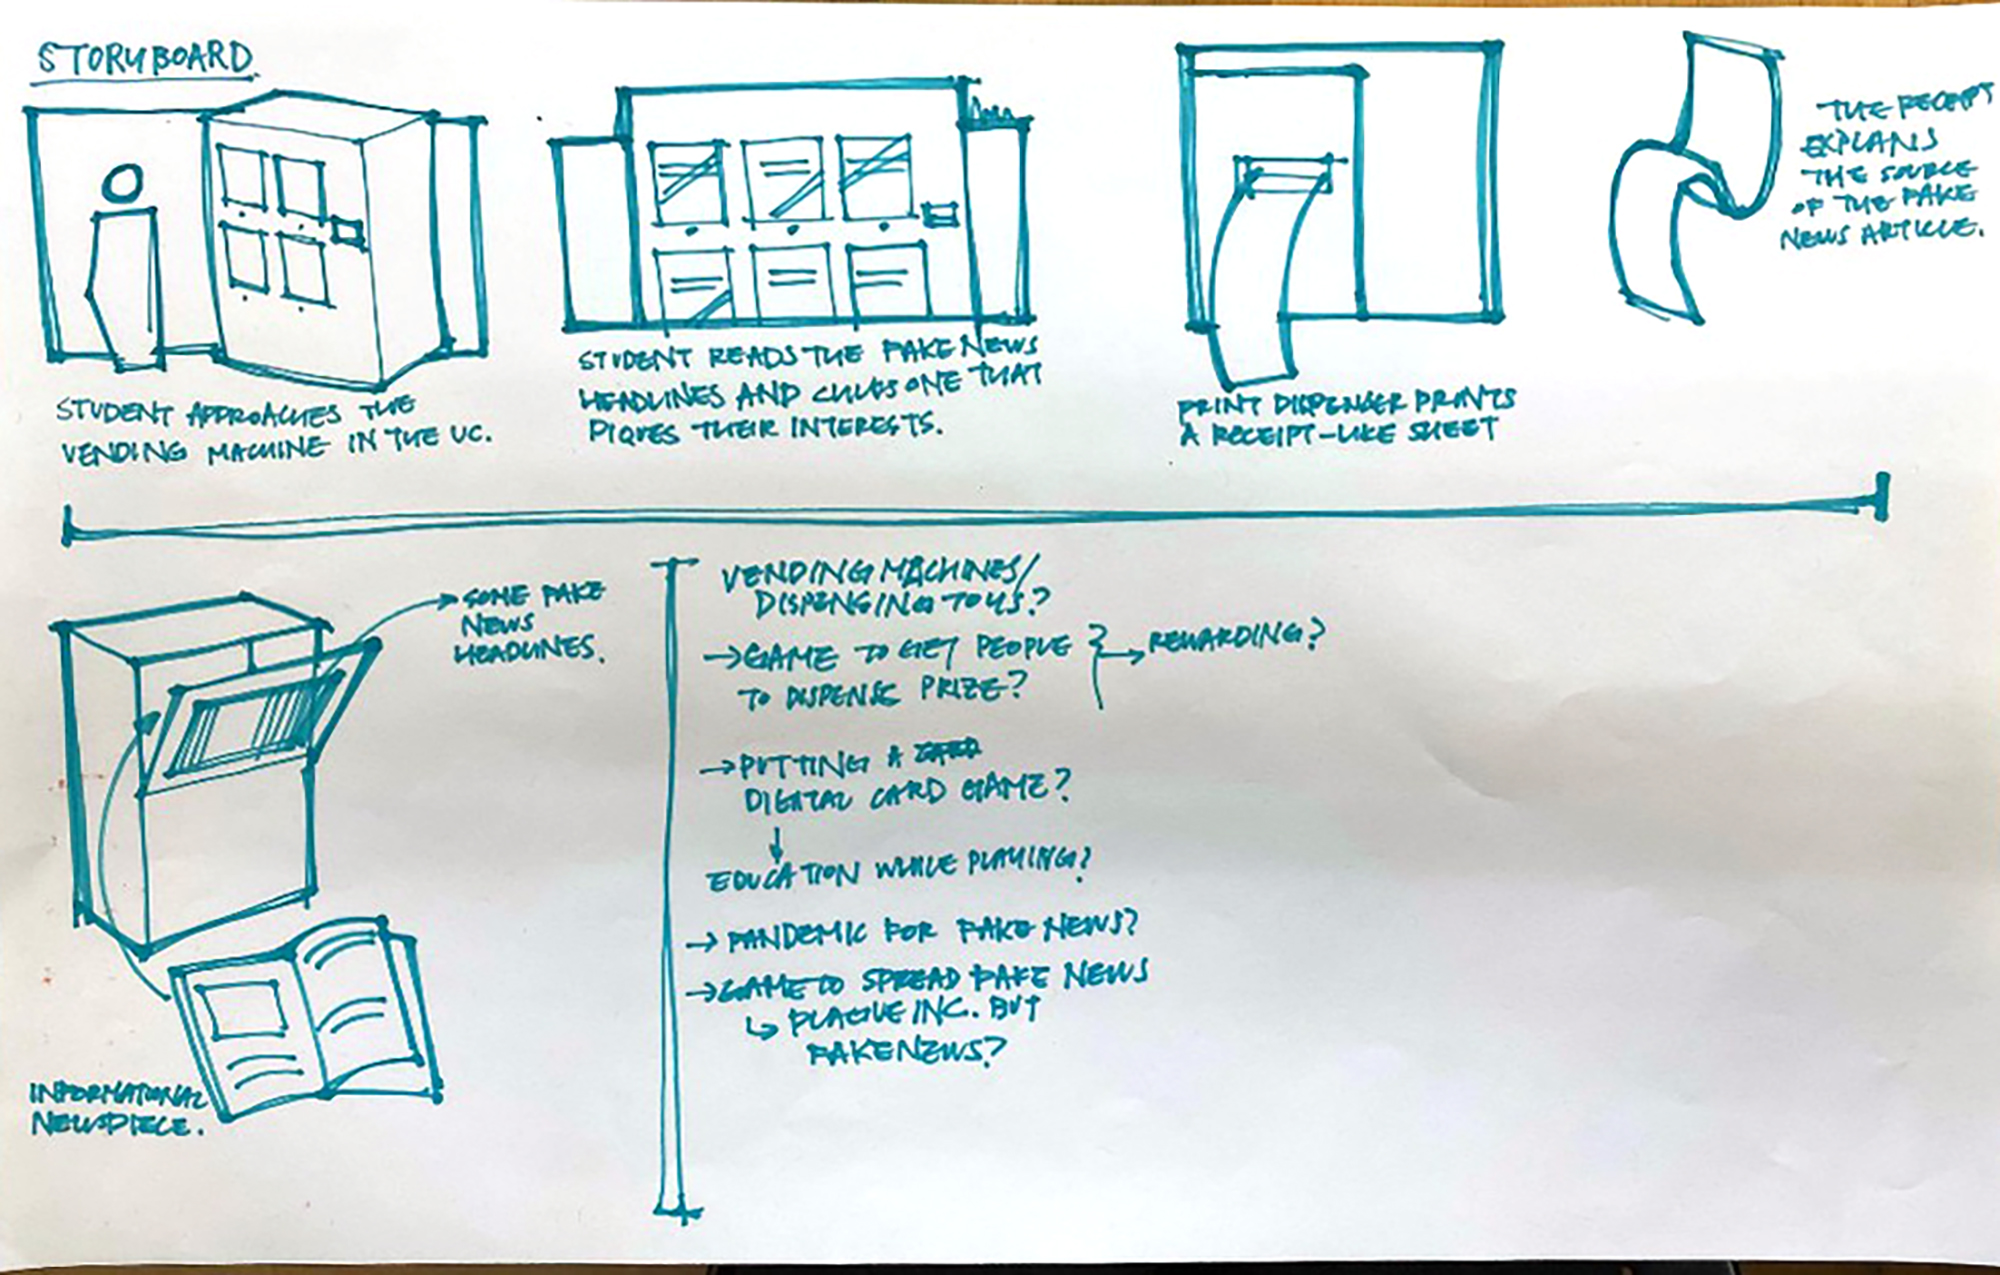 STORYBOARD
STUDENT APPROACHES THE
VENDING MACHINE IN THE UC.
STUDENT READS THE FAKE NEWS
HEADLINES AND CLICKS ONE THAT
PIQUES THEIR INTERESTS.
PRINT DISPENSER PRINTS
A RECEIPT-LIKE SHEET
THE RECEIPT
EXPLAINS
THE SOURCE
OF THE FAKE
NEWS ARTICLE.
SOME FAKE
NEWS
HEADLINES.
INFORMATIONAL
NEWSPIECE.
VENDING MACHINES/
DISPENSING TOYS?
→GAME TO GET PEOPLE
TO DISPENSE PRIZE?
→REWARDING?
→PUTTING A
DIGITAL CARD GAME?
↓
EDUCATION WHILE PLAYING?
→PANDEMIC FOR FAKE NEWS?
→GAME TO SPREAD FAKE NEWS
↳ PLAGUE INC. BUT
FAKE NEWS?